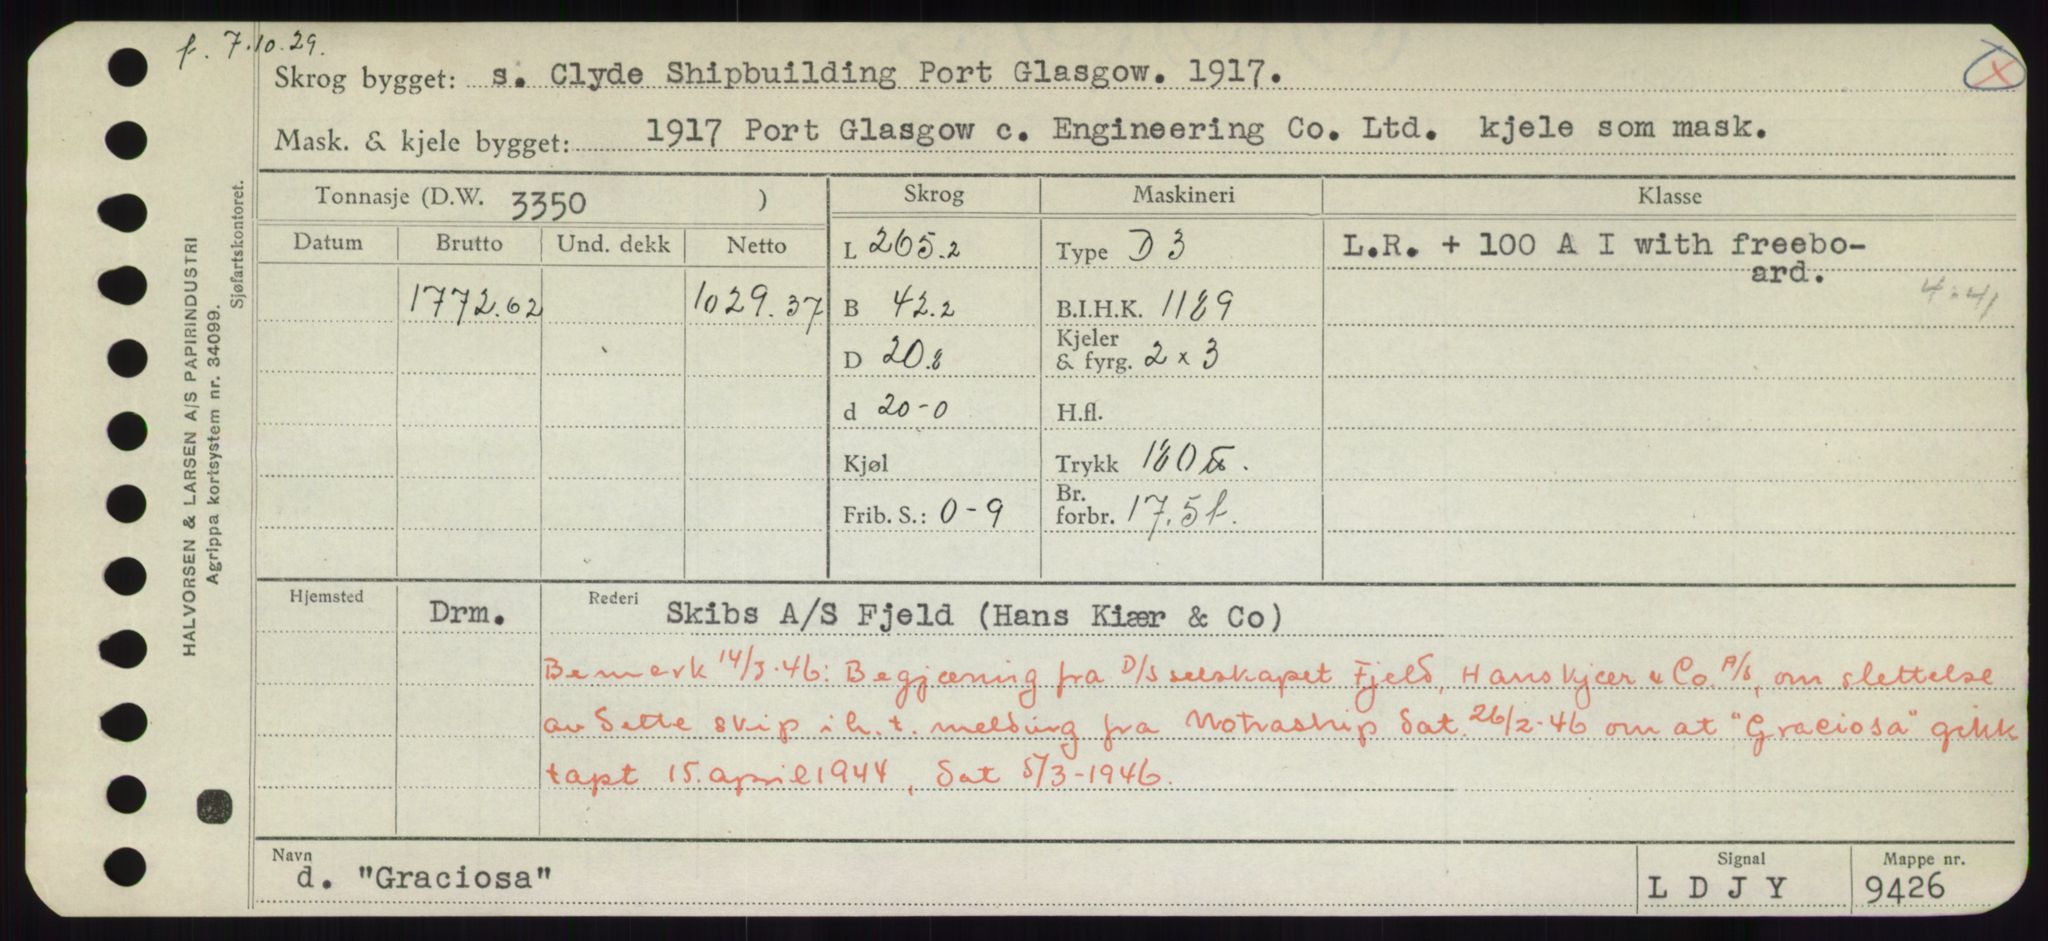 f. 7.10.29.
Skrog bygget: s. Clyde Shipbuilding Port Glasgow. 1917.
Mask. & kjele bygget: 1917 Port Glasgow c. Engineering Co. Ltd. kjele som mask.
Tonnasje (D.W. 3350 ) Skrog Maskineri Klasse
Datum Brutto Und. dekk Netto L 265.2 Type D 3 L.R. + 100 A I with freebo-
ard.
1772.62 1029.37 B 42.2 B.I.H.K. 1189 4.41
D 20.8 Kjeler & fyrg. 2 x 3
d 20-0 H.fl.
Kjøl Trykk 180 ℔.
Frib. S.: 0-9 Br. forbr. 17.5 t.
Hjemsted Drm. Rederi Skibs A/S Fjeld (Hans Kiær & Co)
Bemerk 14/3.46: Begjæring fra D/S selskapet Fjeld, Hans Kjær & Co. A/S, om slettelse
av dette skip i h. t. melding fra Notraship dat. 26/2-46 om at "Graciosa" gikk
tapt 15. april 1944, dat 5/3-1946.
Navn d. "Graciosa" Signal L D J Y Mappe nr. 9426
HALVORSEN & LARSEN A/S PAPIRINDUSTRI
Agrippa kortsystem nr. 34099.
Sjøfartskontoret.